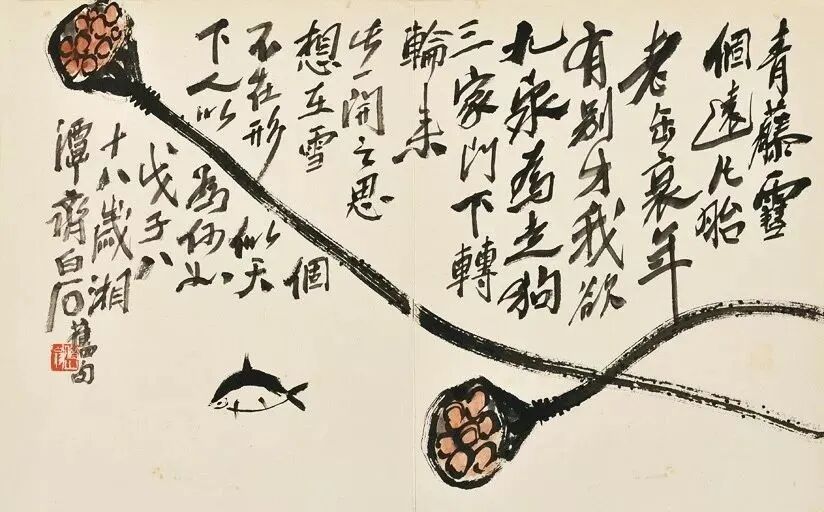 青藤雪
個遠凡胎
老缶衰年
有別才我欲
九泉為走狗
三家門下轉
輪來
此一開之思
想在雪個
不在形似天
下人以為何如
戊子八
十八歲湘
潭齊白石
舊句